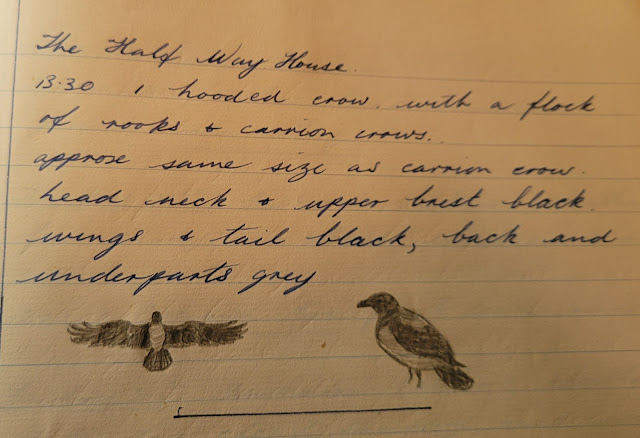 The Half Way House.
13.30 1 hooded crow. with a flock
of rooks & carrion crows.
approx same size as carrion crow.
head neck & upper brest black.
wings & tail black, back and
underparts grey